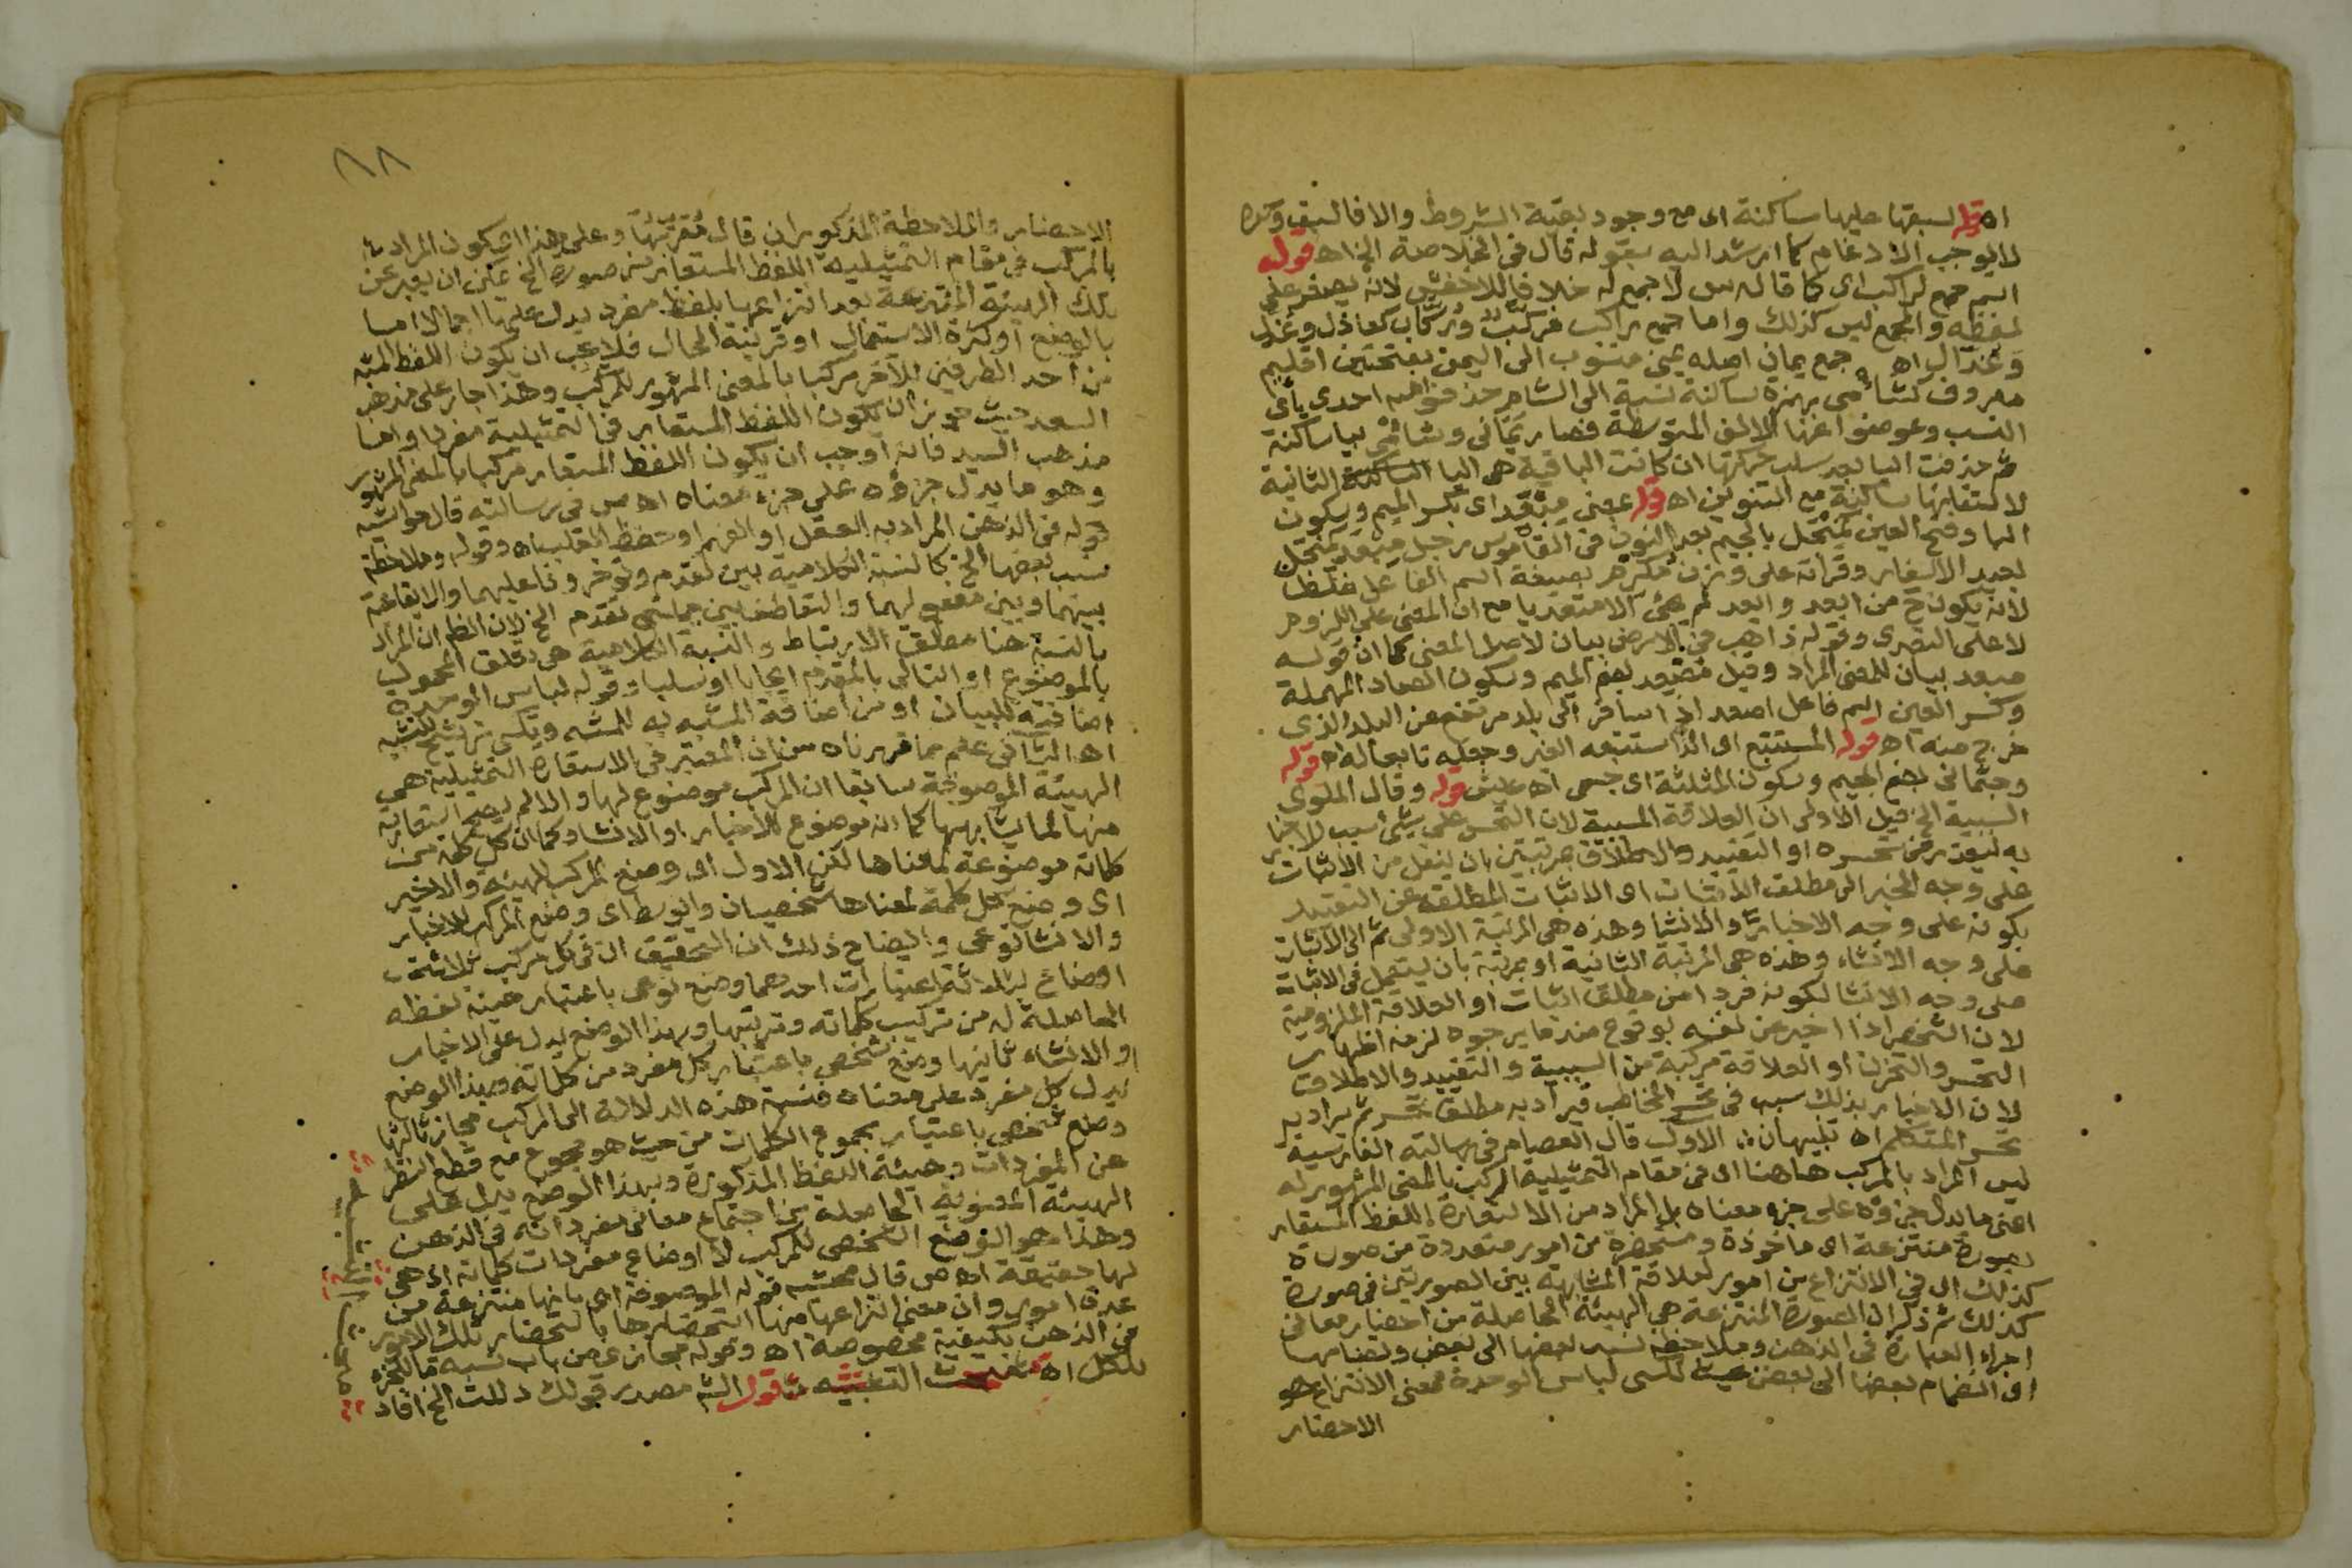 اه قوله لسبقها عليها ساكنة اى مع وجود بقية الشروط والا فالسبق وحده
لا يوجب الادغام كما ارشد اليه بقوله قال فى الخلاصة الخ اه قوله
اسم جمع لراكب اى كما قاله س لا جمع له خلافا للاخفش لانه يصغر على
لفظه والجمع ليس كذلك واما جمع راكب فركّب وركّاب كعاذل وعذّل
وعذّال اه جمع يمان اصله يمنى منسوب الى اليمن بفتحتين اقليم
معروف كشأمى بهمزة ساكنة نسبة الى الشام حذفوا احدى يأى
النسب وعوضوا عنها الالف المتوسطة فصار يمانى وشامى بيا ساكنة
ثم حذفت اليا بعد سلب حركتها ان كانت الباقية هى اليا الثانية
لالتقايها ساكنة مع التنوين اه قوله بمعنى مبعد اى بكسر الميم وسكون
البا وفتح العين كمنجل بالجيم بعد النون فى القاموس رجل مبعد كمنجل
بعيد الاسفار وقراته على وزن مكرم بصيغة اسم الفاعل غلط
لانه يكون ح من ابعد وابعد لم يجئ الا متعديا مع ان المعنى على اللزوم
لا على التعدى وقوله ذاهب فى الارض بيان لاصل المعنى كما ان قوله
مبعد بيان للمعنى المراد وقيل مصعد بضم الميم وسكون الصاد المهملة
وكسر العين اسم فاعل اصعد اذا سافر الى بلد مرتفع عن البلد الذى
خرج منه اه قوله المستتبع اى الذى استتبعه الغير وجعله تابعا له اه قوله
وجثمانى بضم الجيم وسكون المثلثة اى جسمى اه قوله وقال الملوى
السببية الخ قيل الاولى ان العلاقة المسببية لان التحسر على شئ سبب للاخبار
به او التقييد والاطلاق بمرتبتين بان ينقل من الاثبات
على وجه الخبر الى مطلق الاثبات اى الاثبات المطلقه عن التقييد
بكونه على وجه الاخبار والانشا وهذه هى المرتبة الاولى ثم الى الاثبات
على وجه الانشاء وهذه هى المرتبة الثانية او بمرتبة بان يستعمل فى الاثبات
على وجه الانشا لكونه فردا من مطلق اثبات او العلاقة الملزومية
لان الشخص اذا اخبر عن نفسه بوقوع ضد ما يرجوه لزمه اظهار
التحسر والتحزن او العلاقة مركبة من السببية والتقييد والاطلاق
لان الاخبار بذلك سبب فى تحسر المخاطب فيراد به مطلق تحسر ثم يراد به
تحسر المتكلم اه تنبيهان الاول قال العصام فى رسالته الفارسية
ليس المراد بالمركب هاهنا اى فى مقام التمثيلية المركب بالمعنى المشهور له
اعنى ما يدل جزؤه على جزء معناه بل المراد من الاستعارة اللفظ المستعار
بصورة منتزعة اى ماخوذة ومستحضرة من امور متعددة من صورة
كذلك اى فى الانتزاع من امور لعلاقة المشابهة بين الصورتين فى صورة
كذلك ثم ذكر ان الصورة المنتزعة هى الهيئة الحاصلة من احضار معانى
اجزاء العبارة فى الذهن وملاحظة نسب بعضها الى بعض وتضامها
اى انضمام بعضها الى بعض بحيث تكتسى لباس الوحدة فمعنى الانتزاع هو
الاحضار
٨٨
الاحضار والملاحظة المذكوران قال معربها وعلى هذا اى كون المراد
بالمركب فى مقام التمثيلية اللفظ المستعار من صورة الخ يمكن ان يعبر عن
تلك الهيئة المنتزعة بعد انتزاعها بلفظ مفرد يدل عليها اجمالا اما
بالوضع او كثرة الاستعمال او قرينة الحال فلا يجب ان يكون اللفظ
من احد الطرفين للآخر مركبا بالمعنى المشهور للمركب وهذا جار على مذهب
السعد حيث جوز ان يكون اللفظ المستعار فى التمثيلية مفردا واما
مذهب السيد فانه اوجب ان يكون اللفظ المستعار مركبا بالمعنى المشهور
وهو ما يدل جزؤه على جزء معناه اه ص فى رسالته قال محشيه
قوله فى الذهن المراد به العقل او الفهم او حفظ القلب اه وقوله وملاحظة
نسب بعضها الخ كالنسبة الكلامية بين تقدم وتؤخر وفاعليهما والايقاعية
بينهما وبين مفعوليهما والتعاطف بين جملتى تقدم الخ لان الظ ان المراد
بالنسبة هنا مطلق الارتباط والنسبة الكلامية هى تعلق المحمول
بالموضوع او التالى بالمقدم ايجابا او سلبا وقوله لباس الوحدة
اضافته للبيان او من اضافة المشبه به للمشبه وتكتسى ترشيح للتشبيه
اه الثانى علم مما قررناه من ان المعتبر فى الاستعارة التمثيلية هى
الهيئة الموصوفة سابقا ان المركب موضوع لها والا لم يصح استعارته
منها لما يشابهها كما انه موضوع للاخبار او الانشاء وكما ان كل كلمة من
كلماته موضوعة لمعناها لكن الاول اى وضع المركب للهيئة والاخير
اى وضع كل كلمة لمعناها شخصيان والوسط اى وضع المركب للاخبار
والانشا نوعى وايضاح ذلك ان التحقيق ان فى كل مركب ثلاثة
اوضاع بثلاثة اعتبارات احدها وضع نوعى باعتبار هيئة لفظه
الحاصلة له من تركيب كلماته وترتبها وبهذا الوضع يدل على الاخبار
او الانشاء ثانيها وضع شخصى باعتبار كل مفرد من كلماته وبهذا الوضع
يدل كل مفرد على معناه فنسبة هذه الدلالة الى المركب مجاز ثالثها
وضع شخصى باعتبار مجموع الكلمات من حيث هو مجموع مع قطع النظر
عن المفردات وهيئة اللفظ المذكورة وبهذا الوضع يدل على
الهيئة المعنوية الحاصلة من اجتماع معانى مفرداته فى الذهن
وهذا هو الوضع الشخصى للمركب لا اوضاع مفردات كلماته اى هى
لها حقيقة اه ص قال محشيه قوله الموصوفة اى بانها منتزعة من
عدة امور وان معنى انتزاعها منها استحضارها باستحضار تلك الامور
فى الذهن بكيفية مخصوصة اه وقوله مجاز عن من باب نسبة ما للجزء
للكل اه التشبيه قوله مصدر قولك دللت الخ افاد